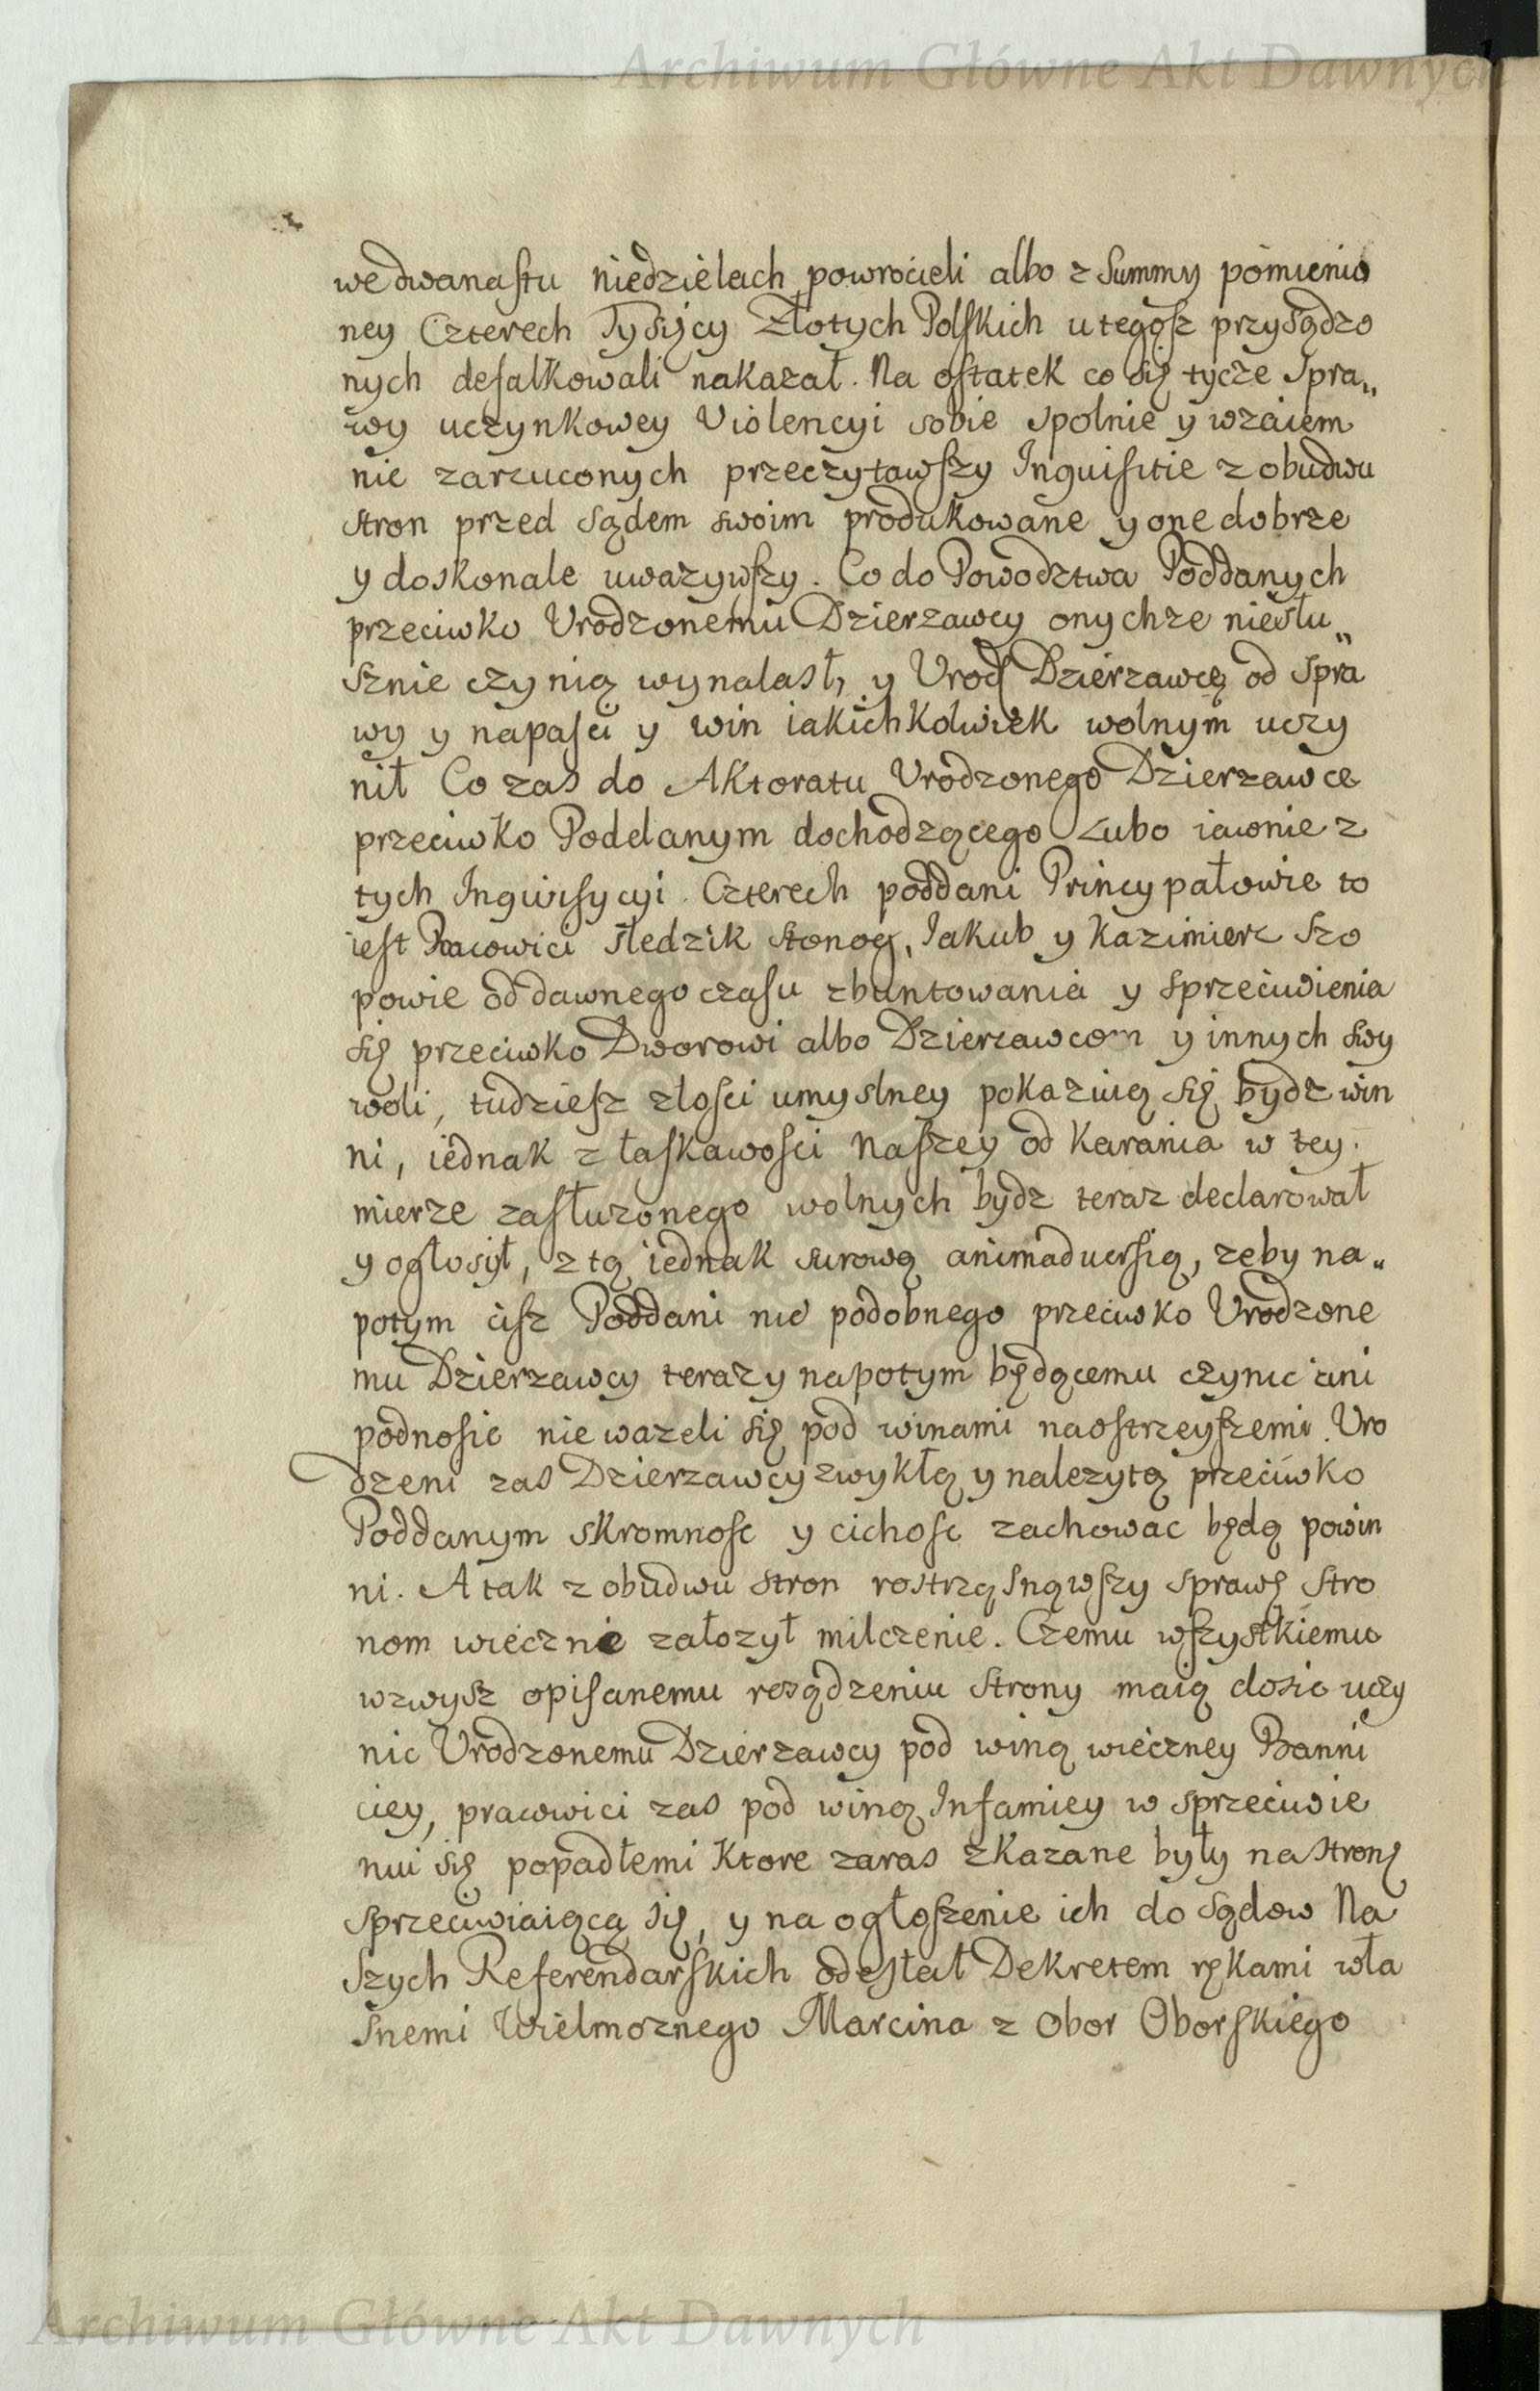 Archiwum Główne Akt Dawnych
we dwanastu niedzielach powrocieli albo z Summy pomienio
ney Czterech Tysięcy Złotych Polskich u tegosz przysądzo
nych defalkowali nakazał. Na ostatek co się tycze Spra„
wy uczynkowey Violencyi sobie spolnie y wzaiem
nie zarzuconych przeczytawszy Inquisitie z obudwu
stron przed sądem swoim produkowane y one dobrze
y doskonale uwazywszy. Co do Powodztwa Poddanych
przeciwko Urodzonemu Dzierzawcy onychze niesłu„
sznie czynią wynalasł, y Urod Dzierzawcę od Spra
wy y napasci y win iakichkolwiek wolnym uczy
nił Co zas do Aktoratu Urodzonego Dzierzawce
przeciwko Poddanym dochodzącego Lubo iawnie z
tych Inqwisycyi Czterech poddani Princypałowie to
iest Pracowici Sledzik Stonog, Jakub y Kazimierz Szo
powie od dawnego czasu zbuntowania y sprzeciwienia
się przeciwko Dworowi albo Dzierzawcom y innych swy
woli, tudziesz złosci umyslney pokazuią się bydz win
ni, iednak z łaskawosci Naszey od karania w tey
mierze zasłuzonego wolnych bydz teraz declarował
y ogłosył, z tą iednak surową animadversią, zeby na„
potym cisz Poddani nic podobnego przeciwko Urodzone
mu Dzierzawcy teraz y napotym będącemu czynic ani
podnosic nie wazeli się pod winami naostrzeyszemi. Uro
dzeni zas Dzierzawcy zwykłą y nalezytą przeciwko
Poddanym skromnosc y cichosc zachowac będą powin
ni. A tak z obudwu stron rostrząsnąwszy sprawę Stro
nom wieczne załozył milczenie. Czemu wszystkiemu
wzwysz opisanemu rosądzeniu Strony maią dosic uczy
nic Urodzonemu Dzierzawcy pod winą wieczney Banni
ciey, pracowici zas pod winą Infamiey w sprzeciwie
niu się popadłemi ktore zaras zkazane były na stronę
sprzeciwiaiącą się, y na ogłoszenie ich do Sądow Na
szych Referendarskich odesłał Dekretem rękami wła
snemi Wielmoznego Marcina z Obor Oborskiego
Archiwum Główne Akt Dawnych